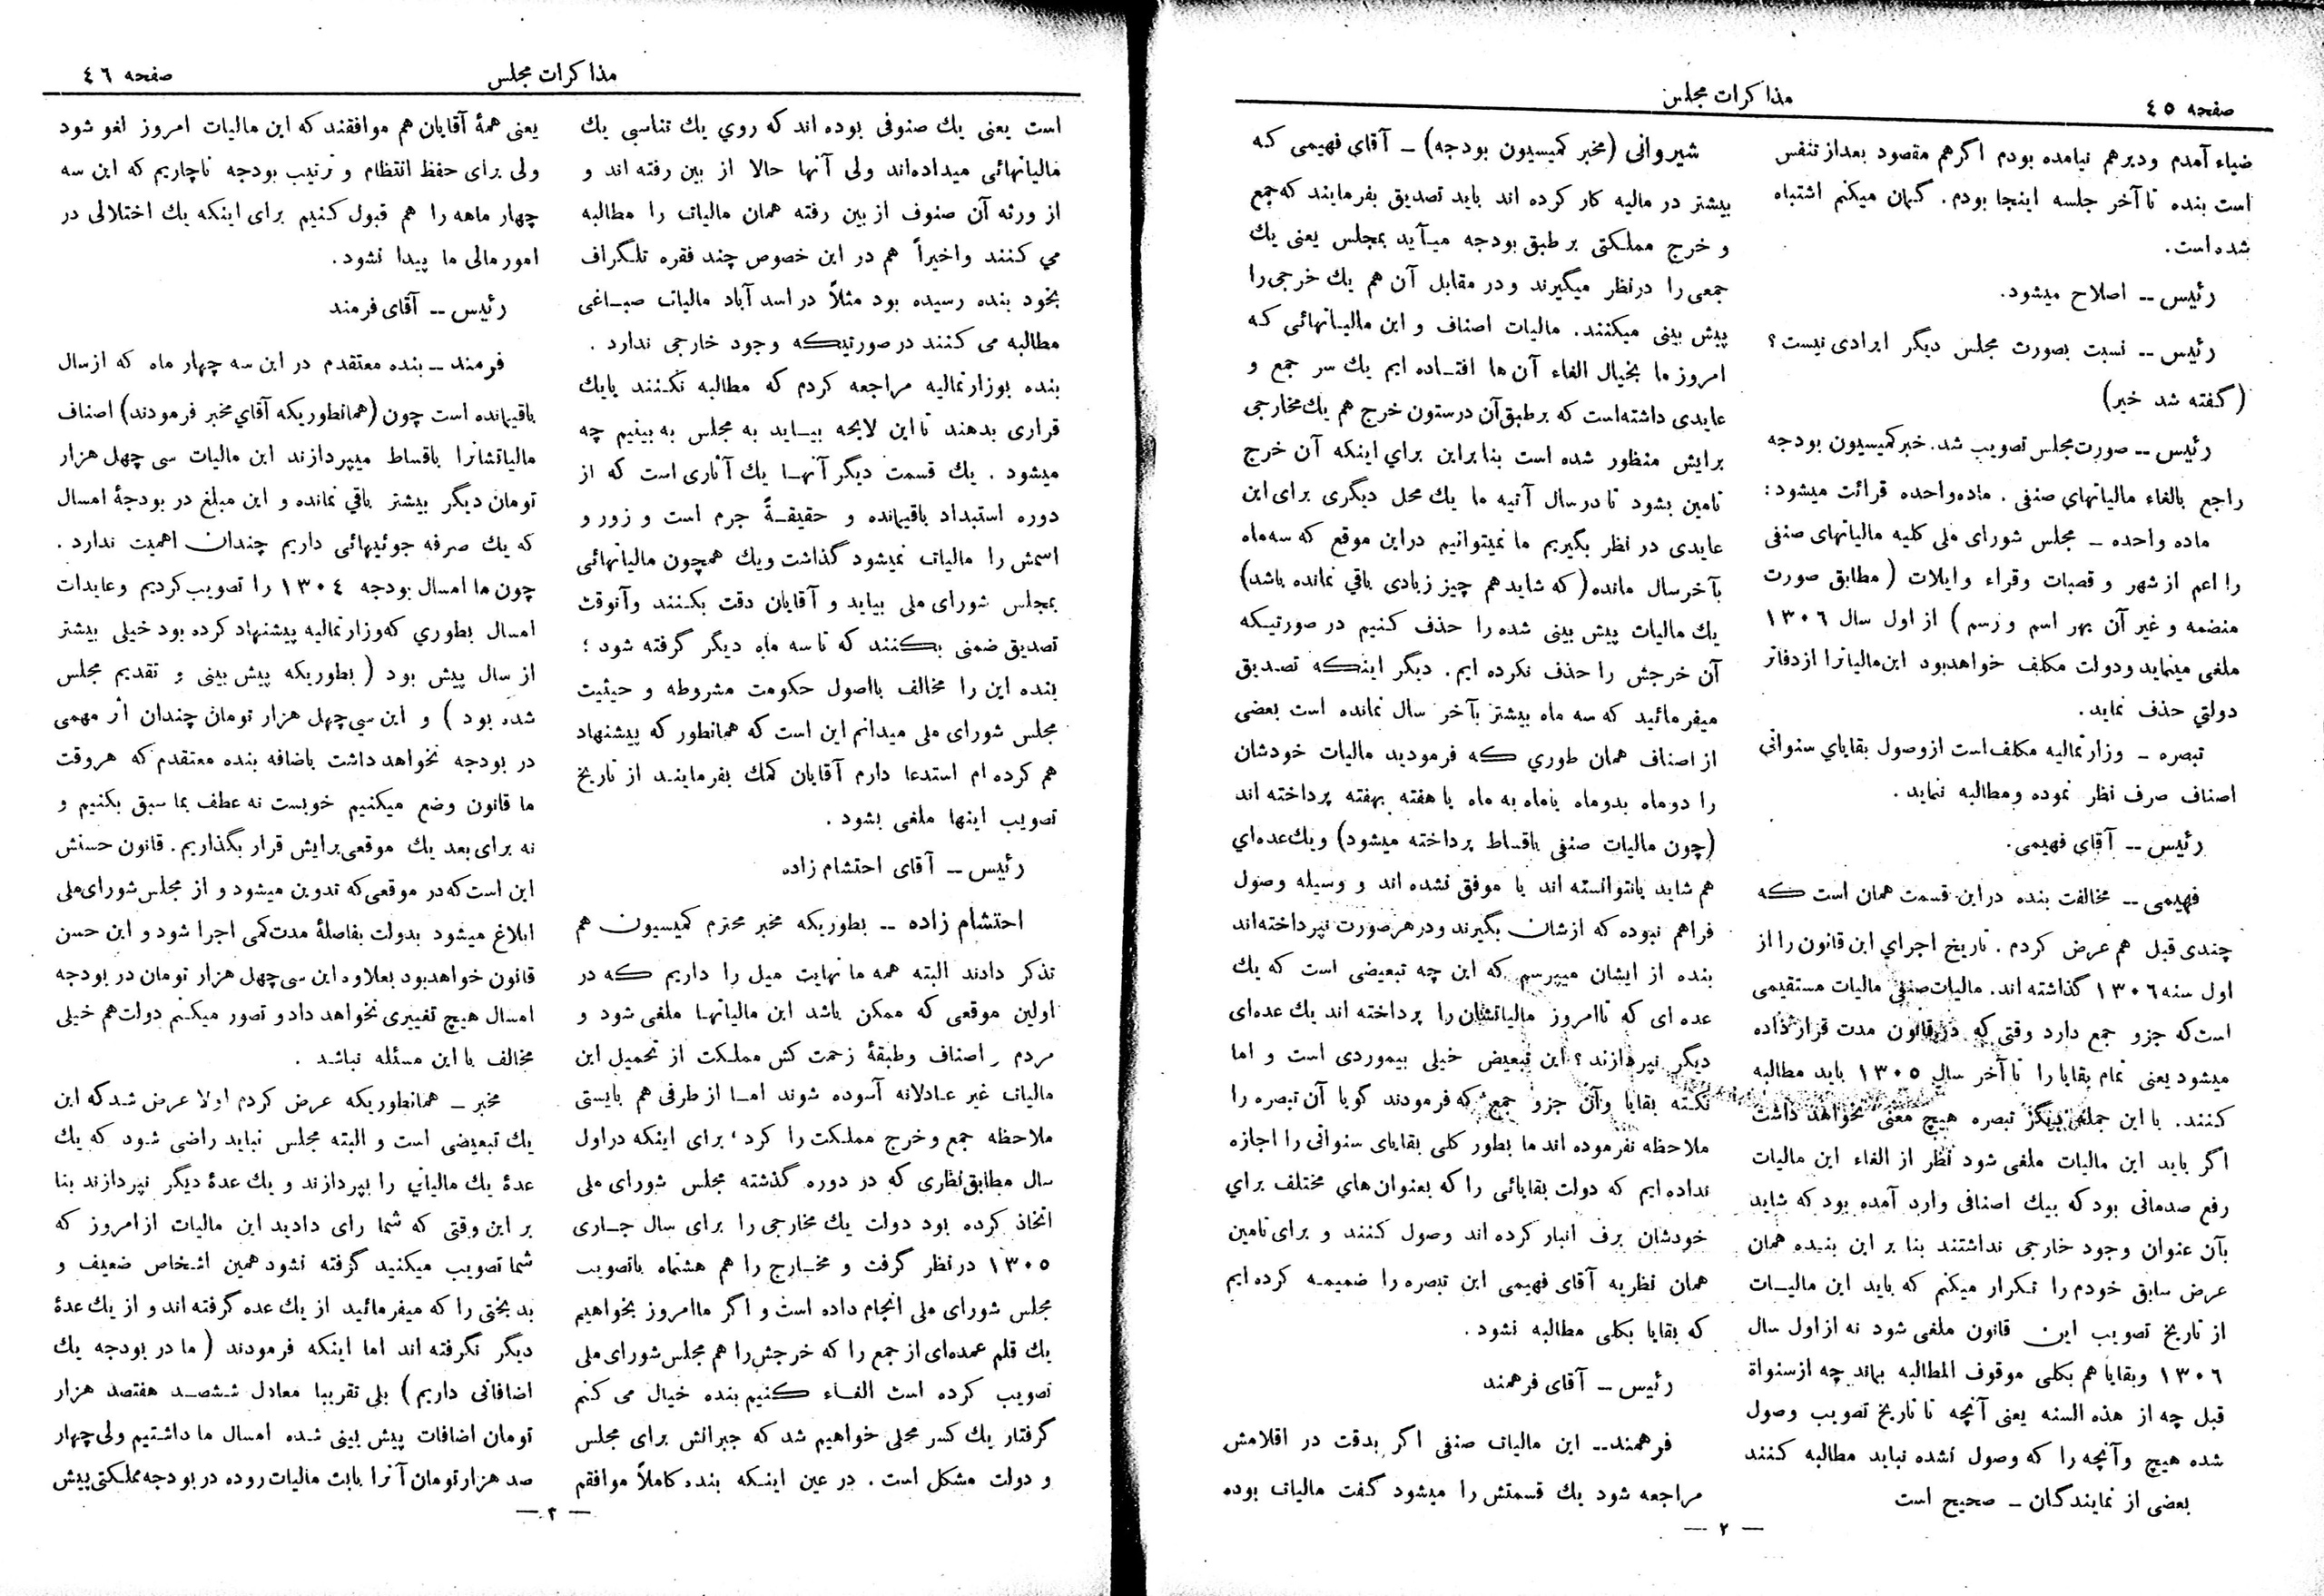 صفحه ٤٥
مذاکرات مجلس
ضیاء آمدم ودیرهم نیامده بودم اگرهم مقصود بعداز تنفس
است بنده تا آخر جلسه اینجا بودم. گمان میکنم اشتباه
شده است.
رئیس -- اصلاح میشود.
رئیس -- نسبت بصورت مجلس دیگر ایرادی نیست؟
(گفته شد خیر)
رئیس -- صورت مجلس تصویب شد. خبر کمیسیون بودجه
راجع بالغاء مالیاتهای صنفی . ماده واحده قرائت میشود:
ماده واحده - مجلس شورای ملی کلیه مالیاتهای صنفی
را اعم از شهر و قصبات وقراء وایلات (مطابق صورت
منضمه و غیر آن بهر اسم و رسم) از اول سال ١٣٠٦
ملغی مینماید ودولت مکلف خواهدبود این مالیاترا ازدفاتر
دولتی حذف نماید.
تبصره - وزارتمالیه مکلف است ازوصول بقایای سنواتی
اصناف صرف نظر نموده ومطالبه ننماید.
رئیس -- آقای فهیمی.
فهیمی -- مخالفت بنده دراین قسمت همان است که
چندی قبل هم عرض کردم. تاریخ اجرای این قانون را از
اول سنه ١٣٠٦ گذاشته اند. مالیات صنفی مالیات مستقیمی
است که جزو جمع دارد وقتی که درقانون مدت قرار داده
میشود یعنی تمام بقایا را تا آخر سال ١٣٠٥ باید مطالبه
کنند. با این جمله دیگر تبصره هیچ معنی نخواهد داشت
اگر باید این مالیات ملغی شود نظر از الغاء این مالیات
رفع صدماتی بود که بیك اصنافی وارد آمده بود که شاید
بآن عنوان وجود خارجی نداشتند بنا بر این بنده همان
عرض سابق خودم را تکرار میکنم که باید این مالیات
از تاریخ تصویب این قانون ملغی شود نه از اول سال
١٣٠٦ وبقایا هم بکلی موقوف المطالبه بماند چه ازسنواة
قبل چه از هذه السنه یعنی آنچه تا تاریخ تصویب وصول
شده هیچ وآنچه را که وصول نشده نباید مطالبه کنند
بعضی از نمایندگان - صحیح است
شیروانی (مخبر کمیسیون بودجه) - آقای فهیمی که
بیشتر در مالیه کار کرده اند باید تصدیق بفرمایند که جمع
و خرج مملکتی بر طبق بودجه میآید بمجلس یعنی یك
جمعی را درنظر میگیرند و در مقابل آن هم یك خرجی را
پیش بینی میکنند. مالیات اصناف و این مالیاتهائی که
امروز ما بخیال الغاء آن ها افتاده ایم یك سر جمع و
عایدی داشته است که برطبق آن درستون خرج هم یك مخارجی
برایش منظور شده است بنابراین برای اینکه آن خرج
تامین بشود تا درسال آتیه ما یك محل دیگری برای این
عایدی در نظر بگیریم ما نمیتوانیم دراین موقع که سه ماه
بآخرسال مانده (که شاید هم چیز زیادی باقی نمانده باشد)
یك مالیات پیش بینی شده را حذف کنیم در صورتیکه
آن خرجش را حذف نکرده ایم. دیگر اینکه تصدیق
میفرمائید که سه ماه بیشتر بآخر سال نمانده است بعضی
از اصناف همان طوری که فرمودید مالیات خودشان
را دوماه بدوماه یاماه به ماه یا هفته بهفته پرداخته اند
(چون مالیات صنفی باقساط پرداخته میشود) ویك عده ای
هم شاید یانتوانسته اند یا موفق نشده اند و وسیله وصول
فراهم نبوده که ازشان بگیرند ودرهرصورت نپرداخته اند
بنده از ایشان میپرسم که این چه تبعیضی است که یك
عده ای که تاامروز مالیاتشان را پرداخته اند یك عده ای
دیگر نپردازند؟ این تبعیض خیلی بیموردی است و اما
نکته بقایا وآن جزو جمع که فرمودند گویا آن تبصره را
ملاحظه نفرموده اند ما بطور کلی بقایای سنواتی را اجازه
نداده ایم که دولت بقایائی را که بعنوان های مختلف برای
خودشان برف انبار کرده اند وصول کنند و برای تامین
همان نظریه آقای فهیمی این تبصره را ضمیمه کرده ایم
که بقایا بکلی مطالبه نشود.
رئیس - آقای فرهمند
فرهمند-- این مالیات صنفی اگر بدقت در اقلامش
مراجعه شود یك قسمتش را میشود گفت مالیات بوده
— ٢ —
مذاکرات مجلس
صفحه ٤٦
است یعنی یك صنوفی بوده اند که روی یك تناسبی یك
مالیاتهائی میداده اند ولی آنها حالا از بین رفته اند و
از ورثه آن صنوف از بین رفته همان مالیات را مطالبه
می کنند واخیراً هم در این خصوص چند فقره تلگراف
بخود بنده رسیده بود مثلاً در اسد آباد مالیات صباغی
مطالبه می کنند در صورتیکه وجود خارجی ندارد.
بنده بوزارتمالیه مراجعه کردم که مطالبه نکنند یایك
قراری بدهند تا این لایحه بیاید به مجلس به بینیم چه
میشود. یك قسمت دیگر آنها یك آثاری است که از
دوره استبداد باقیمانده و حقیقةً جرم است و زور و
اسمش را مالیات نمیشود گذاشت ویك همچون مالیاتهائی
بمجلس شورای ملی بیاید و آقایان دقت بکنند وآنوقت
تصدیق ضمنی بکنند که تا سه ماه دیگر گرفته شود؛
بنده این را مخالف بااصول حکومت مشروطه و حیثیت
مجلس شورای ملی میدانم این است که همانطور که پیشنهاد
هم کرده ام استدعا دارم آقایان کمك بفرمایند از تاریخ
تصویب اینها ملغی بشود.
رئیس - آقای احتشام زاده
احتشام زاده -- بطوریکه مخبر محترم کمیسیون هم
تذکر دادند البته همه ما نهایت میل را داریم که در
اولین موقعی که ممکن باشد این مالیاتها ملغی شود و
مردم اصناف وطبقهٔ زحمت کش مملکت از تحمیل این
مالیات غیر عادلانه آسوده شوند اما از طرفی هم بایستی
ملاحظه جمع و خرج مملکت را کرد، برای اینکه دراول
سال مطابق نظاری که در دوره گذشته مجلس شورای ملی
اتخاذ کرده بود دولت یك مخارجی را برای سال جاری
١٣٠٥ درنظر گرفت و مخارج را هم هشتماه باتصویب
مجلس شورای ملی انجام داده است و اگر ماامروز بخواهیم
یك قلم عمده ای از جمع را که خرجش را هم مجلس شورای ملی
تصویب کرده است الغاء کنیم بنده خیال می کنم
گرفتار یك کسر محلی خواهیم شد که جبرانش برای مجلس
و دولت مشکل است. در عین اینکه بنده کاملاً موافقم
یعنی همهٔ آقایان هم موافقند که این مالیات امروز لغو شود
ولی برای حفظ انتظام و ترتیب بودجه ناچاریم که این سه
چهار ماهه را هم قبول کنیم برای اینکه یك اختلالی در
امورمالی ما پیدا نشود.
رئیس -- آقای فرمند
فرمند - بنده معتقدم در این سه چهار ماه که ازسال
باقیمانده است چون (همانطوریکه آقای مخبر فرمودند) اصناف
مالیاتشانرا باقساط میپردازند این مالیات سی چهل هزار
تومان دیگر بیشتر باقی نمانده و این مبلغ در بودجهٔ امسال
که یك صرفه جوئیهائی داریم چندان اهمیت ندارد.
چون ما امسال بودجه ١٣٠٤ را تصویب کردیم وعایدات
امسال بطوری که وزارتمالیه پیشنهاد کرده بود خیلی بیشتر
از سال پیش بود (بطوریکه پیش بینی و تقدیم مجلس
شده بود) و این سی چهل هزار تومان چندان اثر مهمی
در بودجه نخواهد داشت باضافه بنده معتقدم که هروقت
ما قانون وضع میکنیم خوبست نه عطف بما سبق بکنیم و
نه برای بعد یك موقعی برایش قرار بگذاریم. قانون حسنش
این است که در موقعی که تدوین میشود و از مجلس شورای ملی
ابلاغ میشود بدولت بفاصلهٔ مدت کمی اجرا شود و این حسن
قانون خواهدبود بعلاوه این سی چهل هزار تومان در بودجه
امسال هیچ تغییری نخواهد داد و تصور میکنم دولت هم خیلی
مخالف با این مسئله نباشد.
مخبر - همانطوریکه عرض کردم اولا عرض شد که این
یك تبعیضی است و البته مجلس نباید راضی شود که یك
عدهٔ یك مالیاتی را بپردازند و یك عدهٔ دیگر نپردازند بنا
بر این وقتی که شما رای دادید این مالیات ازامروز که
شما تصویب میکنید گرفته نشود همین اشخاص ضعیف و
بد بختی را که میفرمائید از یك عده گرفته اند و از یك عدهٔ
دیگر نگرفته اند اما اینکه فرمودند (ما در بودجه یك
اضافاتی داریم) بلی تقریبا معادل ششصد هفتصد هزار
تومان اضافات پیش بینی شده امسال ما داشتیم ولی چهار
صد هزار تومان آنرا بابت مالیات روده در بودجه مملکتی پیش
— ٣ —